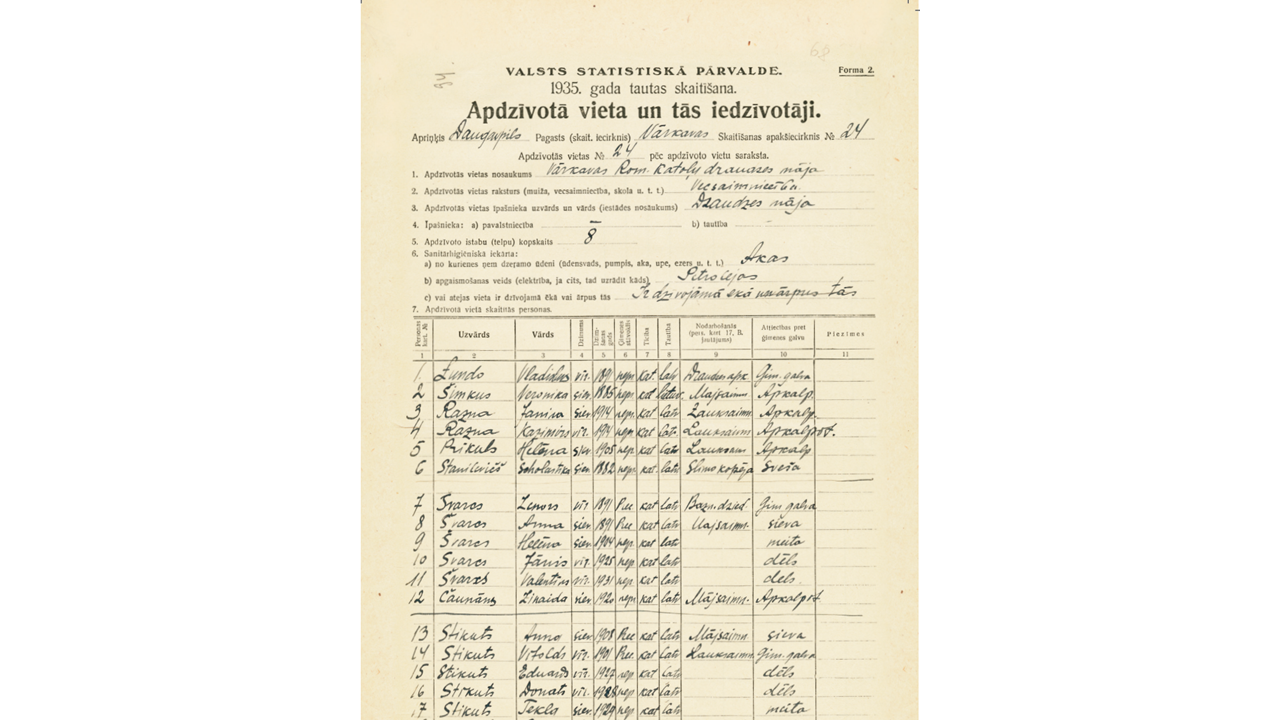 VALSTS STATISTISKĀ PĀRVALDE.
Forma 2.
1935. gada tautas skaitīšana.
Apdzīvotā vieta un tās iedzīvotāji.
Apriņķis Daugavpils Pagasts (skait. iecirknis) Vārkavas Skaitīšanas apakšiecirknis № 24
Apdzīvotās vietas № 24 pēc apdzīvoto vietu saraksta.
1. Apdzīvotās vietas nosaukums Vārkavas Rom. katoļu draudzes māja
2. Apdzīvotās vietas raksturs (muiža, vecsaimniecība, skola u. t. t.) Vecsaimniecība.
3. Apdzīvotās vietas īpašnieka uzvārds un vārds (iestādes nosaukums) Draudzes māja
4. Īpašnieka: a) pavalstniecība — b) tautība
5. Apdzīvoto istabu (telpu) kopskaits 8
6. Sanitārhigiēniskā iekārta:
a) no kurienes ņem dzeŗamo ūdeni (ūdensvads, pumpis, aka, upe, ezers u. t. t.) Akas
b) apgaismošanas veids (elektrība, ja cits, tad uzrādīt kāds) Petrolejas
c) vai atejas vieta ir dzīvojamā ēkā vai ārpus tās Ir dzīvojāmā ekā un ārpus tās
7. Apdzīvotā vietā skaitītās personas.
Personas kart. № Uzvārds Vārds Dzimums Dzimšanas gads Ģimenes stāvoklis Ticība Tautība Nodarbošanās (pers. kart 17, B. jautājums) Attiecības pret ģimenes galvu Piezīmes
1 2 3 4 5 6 7 8 9 10 11
1. Lundo Vladislavs vīr. 1891 nepr. kat. latv Ģim. galva
2 Šimkus Veronika siev. 1885 nepr. kat Mājsaimn. Apkalp.
3 Razna Janina siev 1914 nepr. kat latv Lauksaimn. Apkalp.
4 Razna Kazimirs vīr. 1914 nepr. kat latv Lauksaimn Apkalpot.
5 Helēna siev. 1908 nepr. kat latv Apkalp
6 Stanilevičš Scholastika siev. 1882 nepr. kat. latv Slimo kopēja Sveša
7 Švarcs vīr 1891 Prec kat latv Bazn. dzied. Ģim. galva
8 Švarcs Anna siev. 1891 Prec kat latv Majsaimn. sieva
9 Švarcs Helēna siev. 1904 nepr. kat latv meita
10 Švarcs Jānis vīr. 1925 nepr kat latv dēls
11 Švarcs Valentīns vīr. 1931 nepr. kat latv dels
12 Čaunāns Zinaida siev. 1920 nepr kat latv Mājsaimn. Apkalpot
13 Stikuts Anna siev. 1908 Prec kat latv Mājsaimn sieva
14 Stikuts Vitolds vīr. 1901 Prec. kat latv Lauksaimn. Ģim. galva
15 Stikuts Eduards vīr. 1927 nepr kat latv dēls
16 Stikuts Donats vīr. 1928 nepr kat latv dēls
17 Stikuts Tekla siev. 1929 nepr kat latv meita